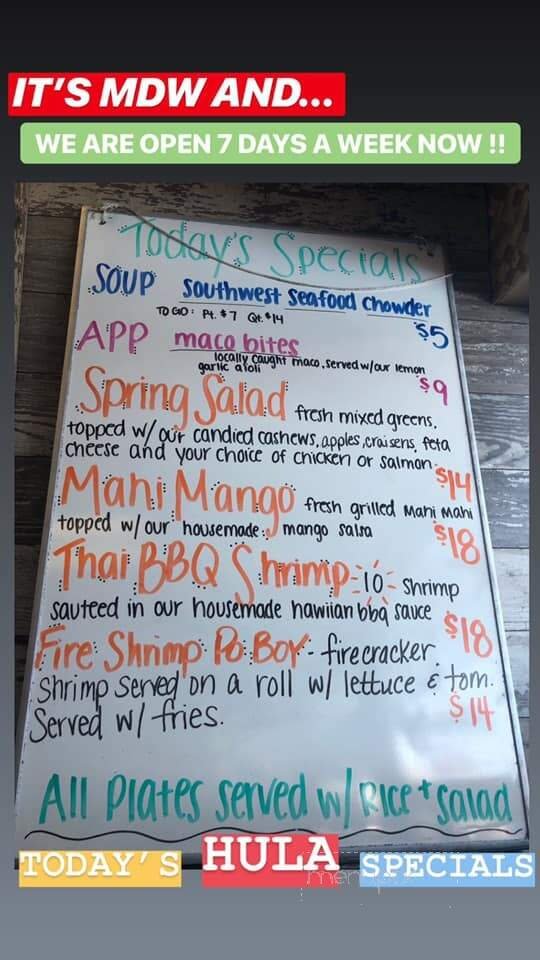 IT'S MDW AND...
WE ARE OPEN 7 DAYS A WEEK NOW !!
Today's Specials
SOUP Southwest Seafood Chowder
TO GO: Pt. $7 Qt. $14 $5
APP maco bites
locally caught maco, served w/our lemon
garlic aioli $9
Spring Salad fresh mixed greens,
topped w/ our candied cashews, apples, craisens, feta
cheese and your choice of chicken or salmon. $14
Mahi Mango fresh grilled Mahi Mahi
topped w/ our housemade mango salsa $18
Thai BBQ Shrimp -10- Shrimp
sauteed in our housemade hawiian bbq sauce $18
Fire Shrimp Po Boy - firecracker
Shrimp served on a roll w/ lettuce & tom.
Served w/ fries. $14
All Plates served w/ Rice + Salad
TODAY'S HULA SPECIALS